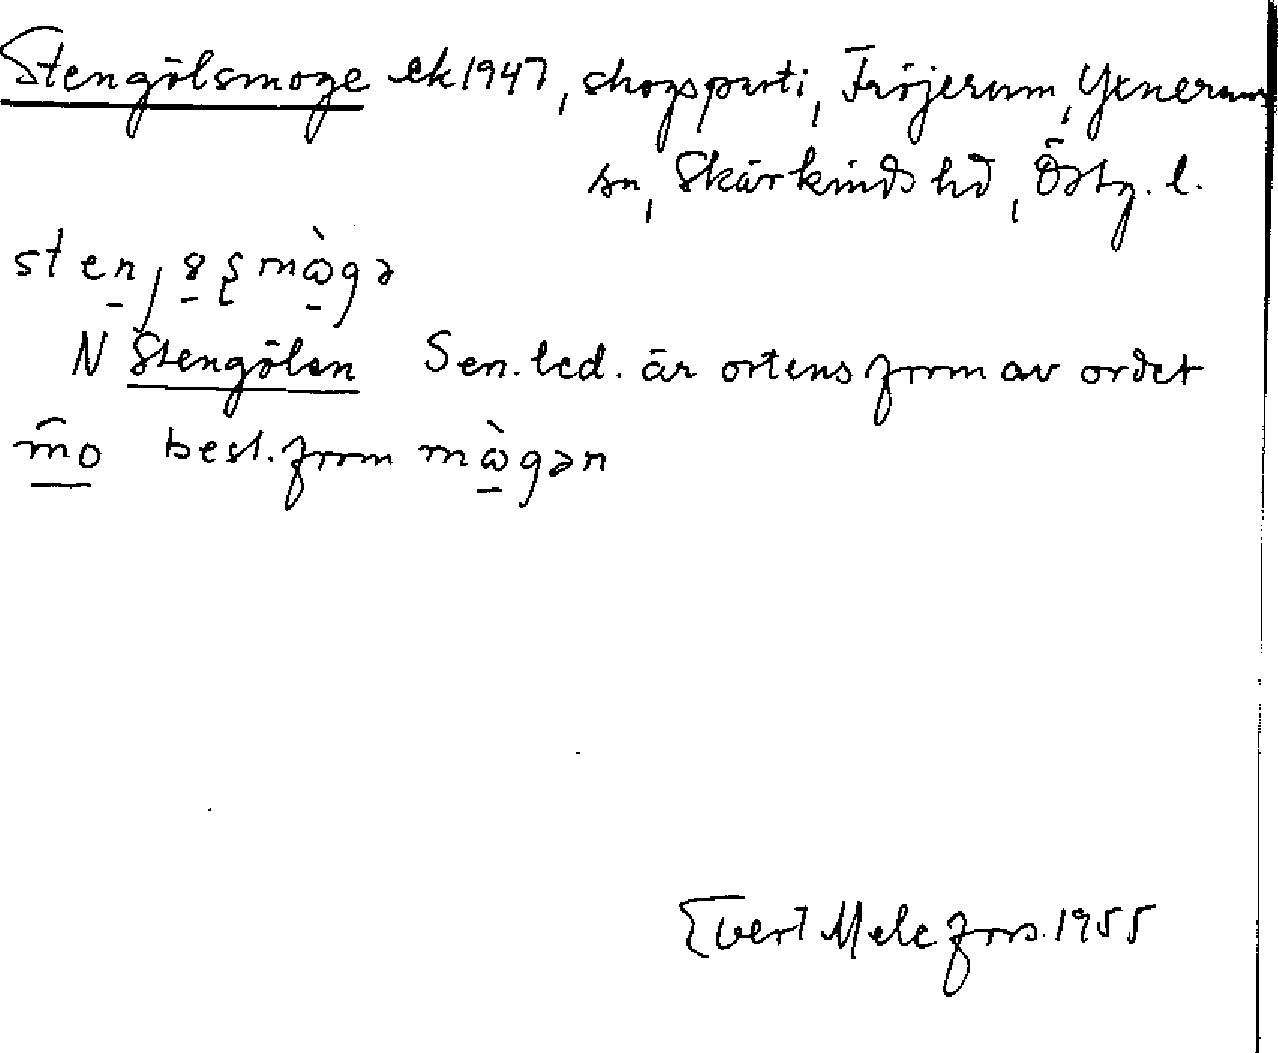 Stengölsmoge ek 1947, skogsparti, Fröjerum, Yxnerum
sn, Skärkinds hd, Östg. l.
N Stengölen Sen. led. är ortens form av ordet
mo best. form mɷ̀gən
Evert Melefors. 1955